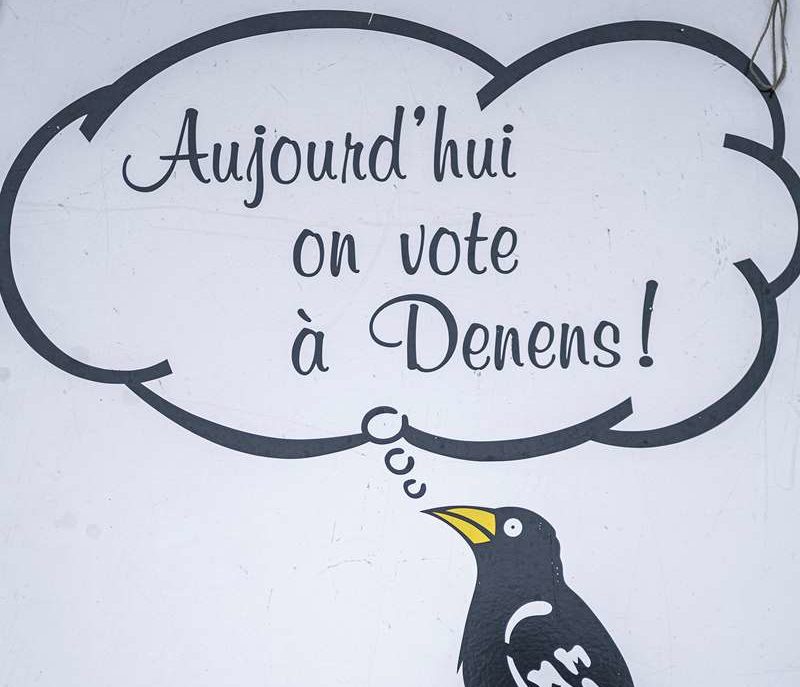 Aujourd'hui
on vote
à Denens!